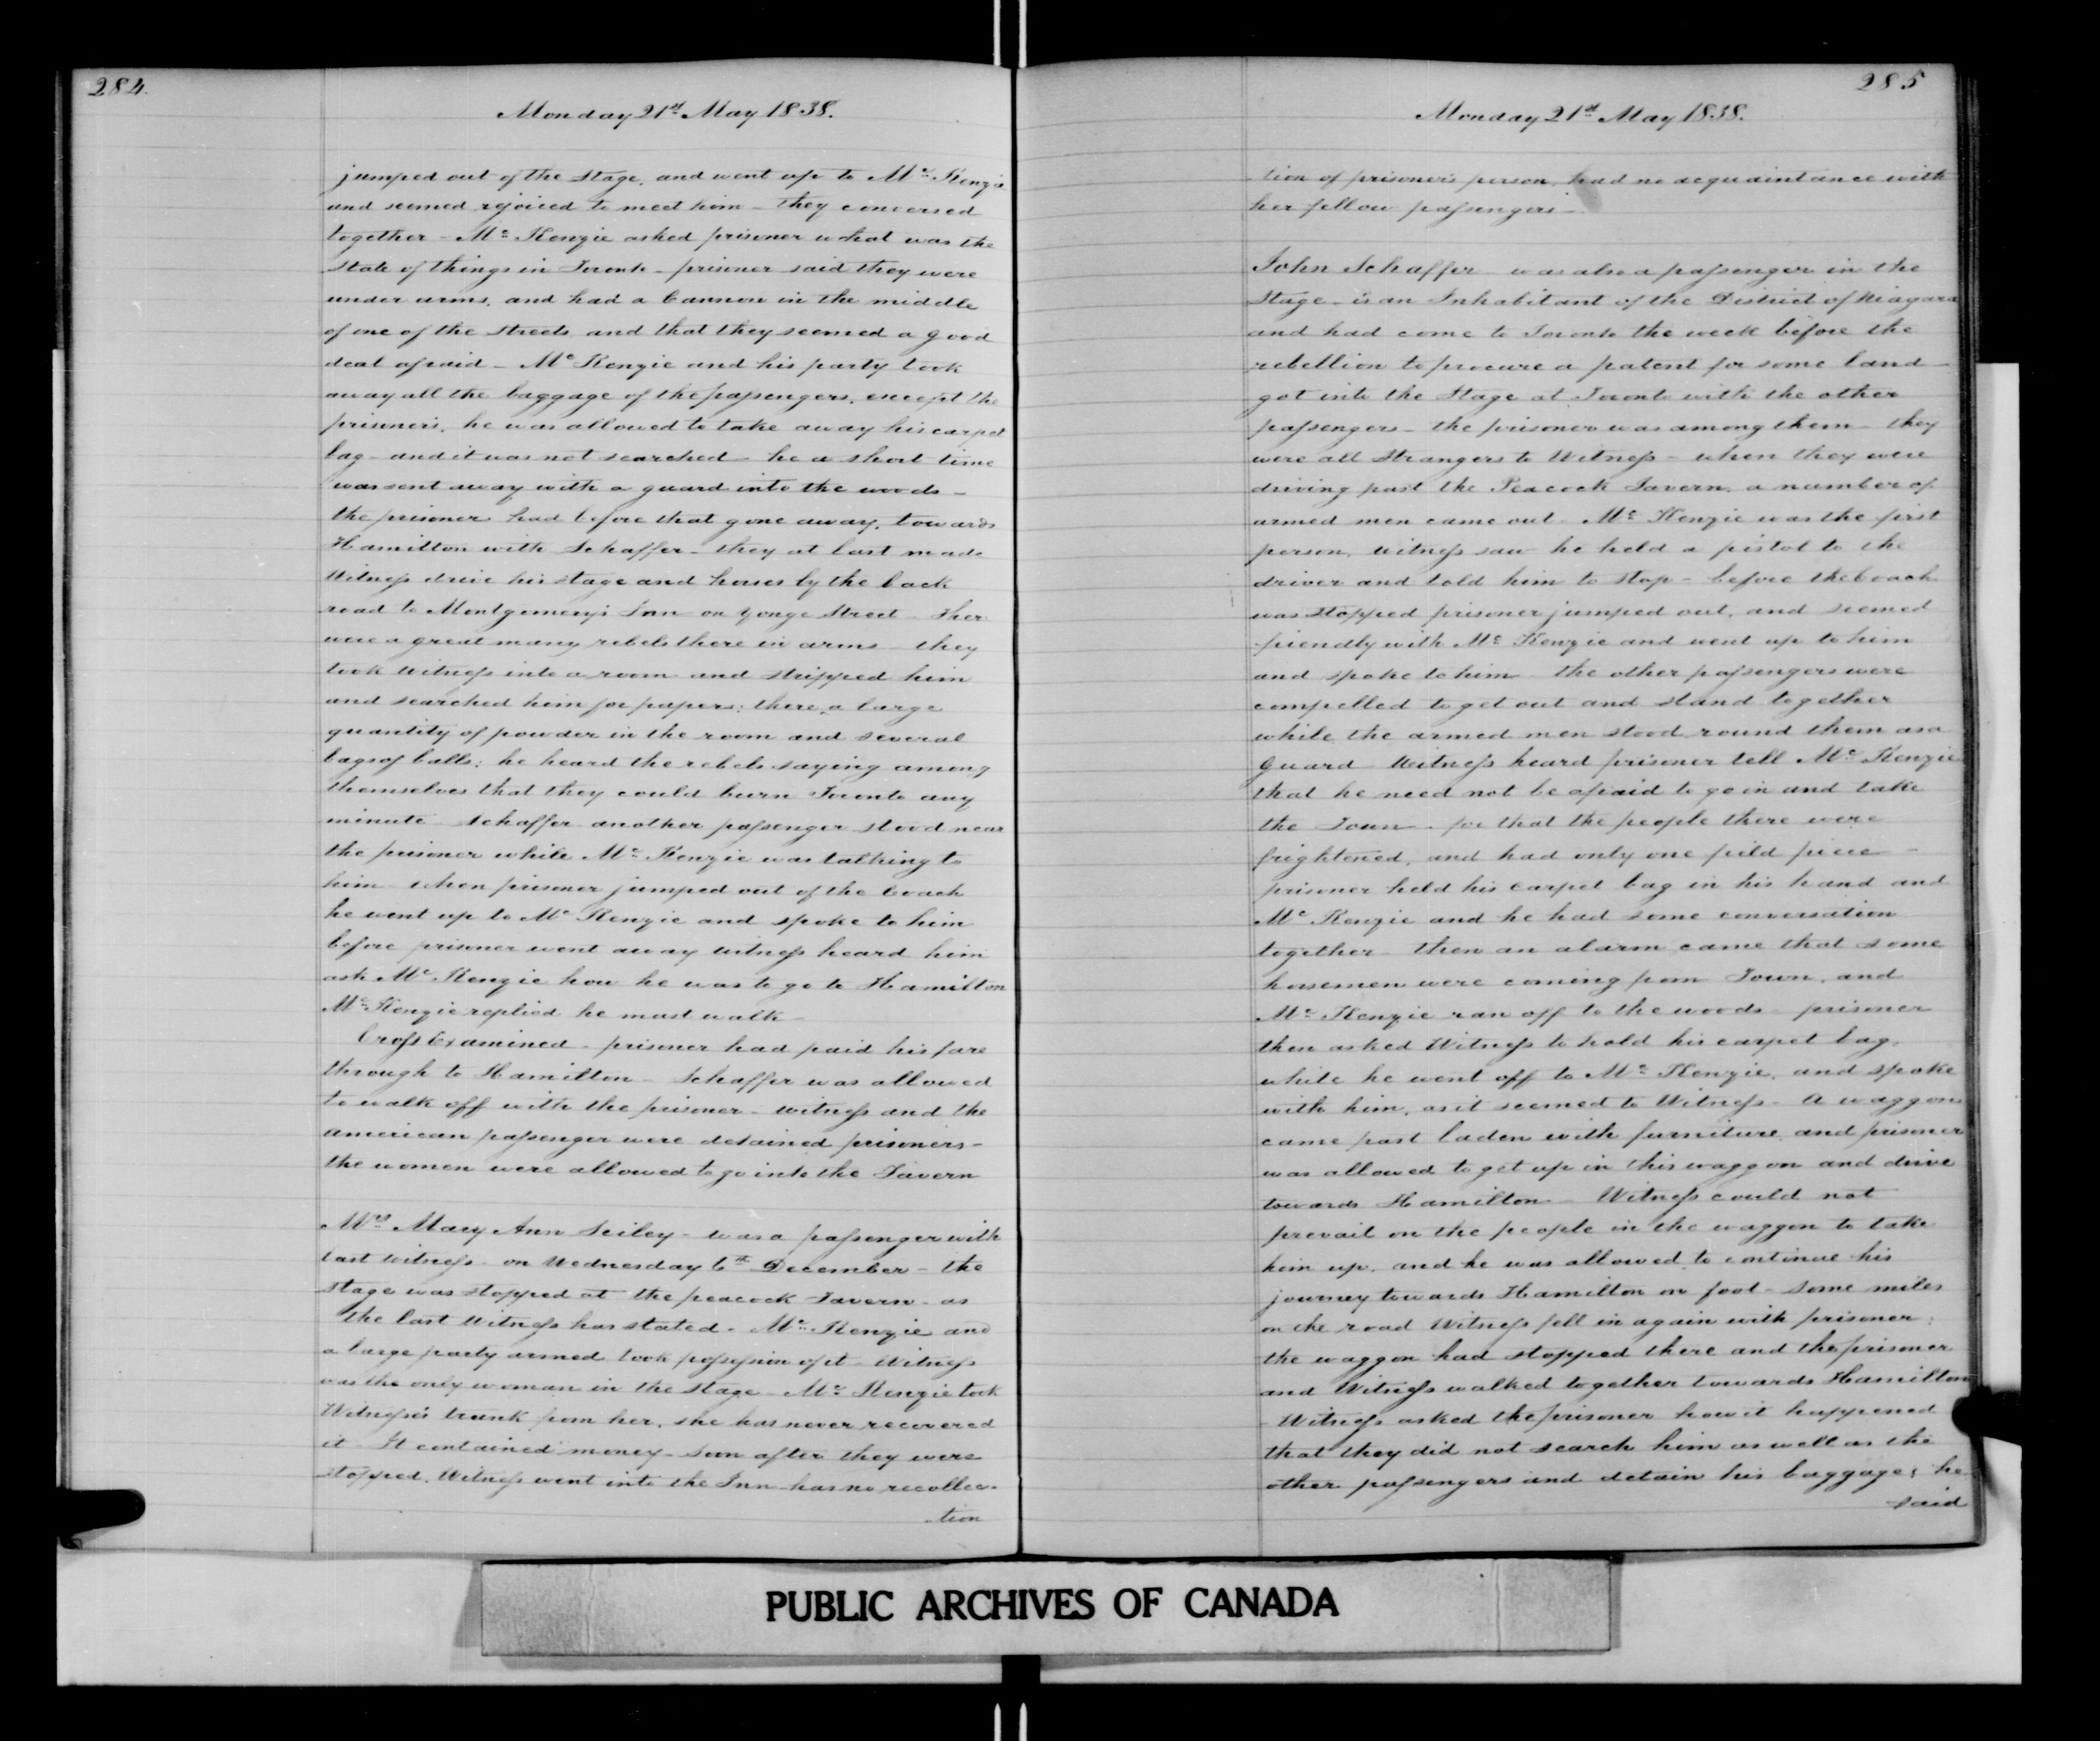 284.
Monday 21st May 1838.
jumped out of the Stage, and went up to Mc Kenzie
and seemed rejoiced to meet him - they conversed
together - Mc Kenzie asked prisoner what was the
state of things in Toronto - prisoner said they were
under arms, and had a Cannon in the middle
of one of the streets and that they seemed a good
deal afraid - Mc Kenzie and his party took
away all the baggage of the passengers, except the
prisoners, he was allowed to take away his carpet
bag - and it was not searched - he a short time
was sent away with a guard into the woods -
the prisoner had before that gone away, towards
Hamilton with Schaffer - they at last made
Witness drive his stage and horses by the back
road to Montgomery's Inn on Yonge Street - Ther
were a great many rebels there in arms - they
took Witness into a room and stripped him
and searched him for papers; there a large
quantity of powder in the room and several
bags of balls; he heard the rebels saying among
themselves that they could burn Toronto any
minute Schaffer another passenger stood near
the prisoner while Mc Kenzie was talking to
him - when prisoner jumped out of the Coach
he went up to Mc Kenzie and spoke to him
before prisoner went away witness heard him
ask Mc Kenzie how he was to go to Hamilton
Mc Kenzie replied he must walk -
Cross Examined - prisoner had paid his fare
through to Hamilton - Schaffer was allowed
to walk off with the prisoner - witness and the
American passenger were detained prisoners -
the women were allowed to go into the Tavern
Mrs Mary Ann Seiley - was a passenger with
last witness - on Wednesday 6th December - the
stage was stopped at the peacock Tavern - as
the last Witness has stated - Mc Kenzie and
a large party armed took possession of it - Witness
was the only woman in the stage - Mc Kenzie took
Witness's trunk from her, she has never recovered
it - It contained money - Soon after they were
stopped, Witness went into the Inn - has no recollec-
tion
285
Monday 21st May 1838.
tion of prisoner's person, had no acquaintance with
her fellow passengers -
John Schaffer was also a passenger in the
Stage - is an Inhabitant of the District of Niagara
and had come to Toronto the week before the
rebellion to procure a patent for some land -
got into the Stage at Toronto with the other
passengers - the prisoner was among them - they
were all Strangers to Witness - when they were
driving past the Peacock Tavern, a number of
armed men came out - Mc Kenzie was the first
person, witness saw he held a pistol to the
driver and told him to stop - before the coach
was stopped prisoner jumped out, and seemed
friendly with Mc Kenzie and went up to him
and spoke to him - the other passengers were
compelled to get out and stand together
while the armed men stood round them as a
guard - Witness heard prisoner tell Mc Kenzie
that he need not be afraid to go in and take
the Town - for that the people there were
frightened, and had only one field piece -
prisoner held his carpet bag in his hand and
Mc Kenzie and he had some conversation
together - then an alarm came that some
horsemen were coming from Town, and
Mc Kenzie ran off to the woods - prisoner
then asked Witness to hold his carpet bag,
while he went off to Mc Kenzie, and spoke
with him, as it seemed to Witness - A waggon
came past laden with furniture and prisoner
was allowed to get up in this waggon and drive
towards Hamilton - Witness could not
prevail on the people in the waggon to take
him up, and he was allowed to continue his
journey towards Hamilton on foot - some miles
on the road Witness fell in again with prisoner;
the waggon had stopped there and the prisoner
and Witness walked together towards Hamilton
- Witness asked the prisoner how it happened
that they did not search him as well as the
other passengers and detain his baggage; he
said
PUBLIC ARCHIVES OF CANADA